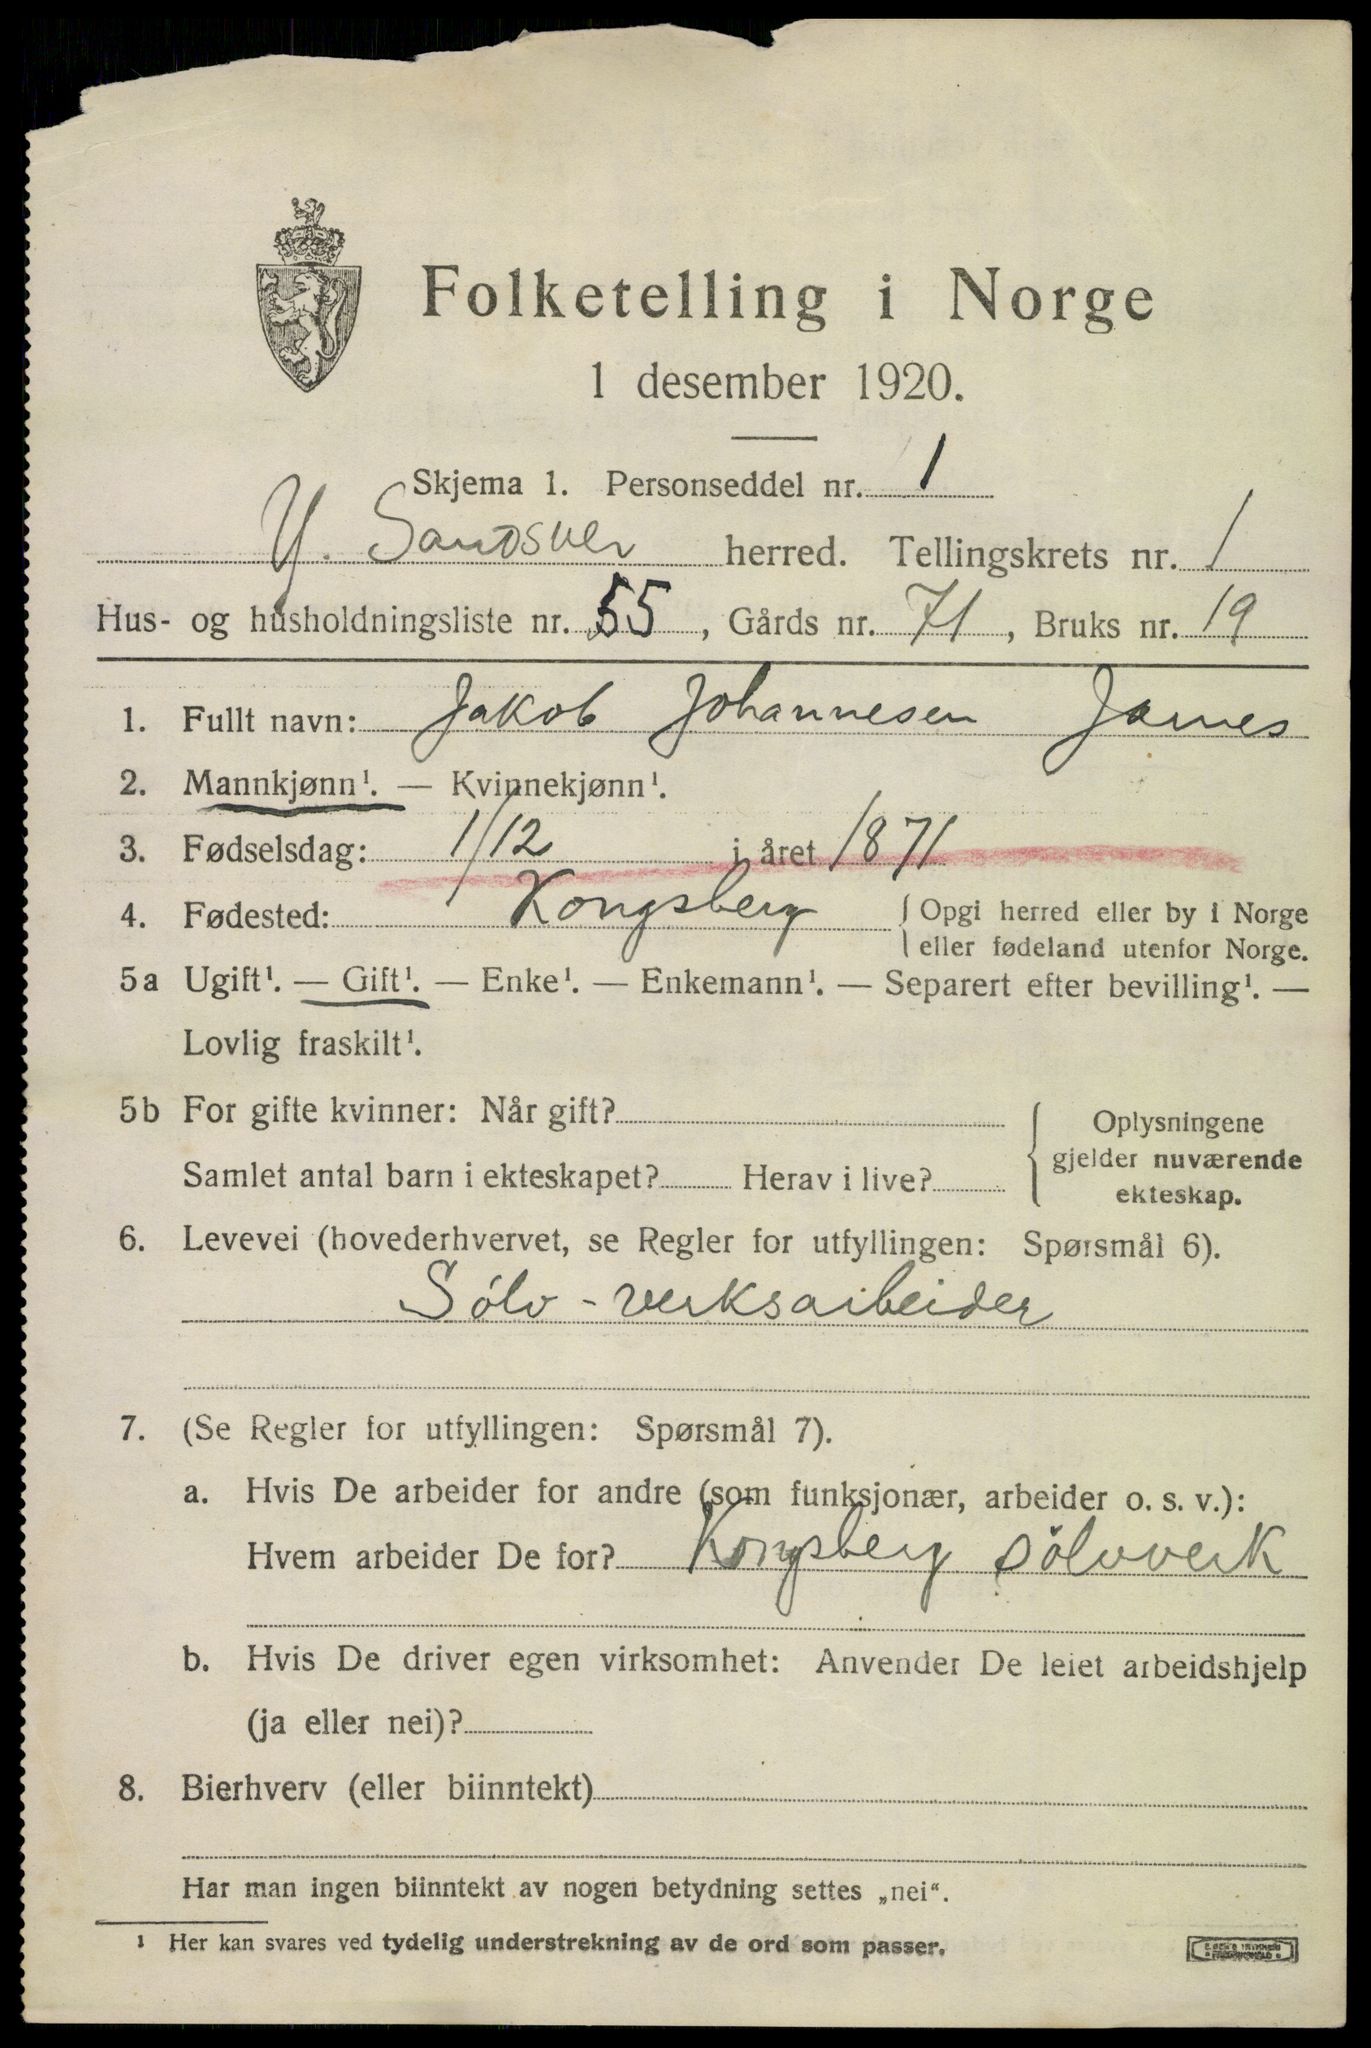 Folketelling i Norge
1 desember 1920.
Skjema 1. Personseddel nr. 1
Y. Sandsver herred. Tellingskrets nr. 1
Hus- og husholdningsliste nr. 55, Gårds nr. 71, Bruks nr. 19
1. Fullt navn: Jakob Johannesen James
2. Mannkjønn¹. — Kvinnekjønn¹.
3. Fødselsdag: 1/12 i året 1871
4. Fødested: Kongsberg { Opgi herred eller by i Norge
eller fødeland utenfor Norge.
5a Ugift¹. — Gift¹. — Enke¹. — Enkemann¹. — Separert efter bevilling¹. —
Lovlig fraskilt¹.
5b For gifte kvinner: Når gift?
Samlet antal barn i ekteskapet? Herav i live?
{ Oplysningene
gjelder nuværende
ekteskap.
6. Levevei (hovederhvervet, se Regler for utfyllingen: Spørsmål 6).
Sölv-verksarbeider
7. (Se Regler for utfyllingen: Spørsmål 7).
a. Hvis De arbeider for andre (som funksjonær, arbeider o. s. v.):
Hvem arbeider De for? Kongsberg sölvverk
b. Hvis De driver egen virksomhet: Anvender De leiet arbeidshjelp
(ja eller nei)?
8. Bierhverv (eller biinntekt)
Har man ingen biinntekt av nogen betydning settes „nei“.
¹ Her kan svares ved tydelig understrekning av de ord som passer.